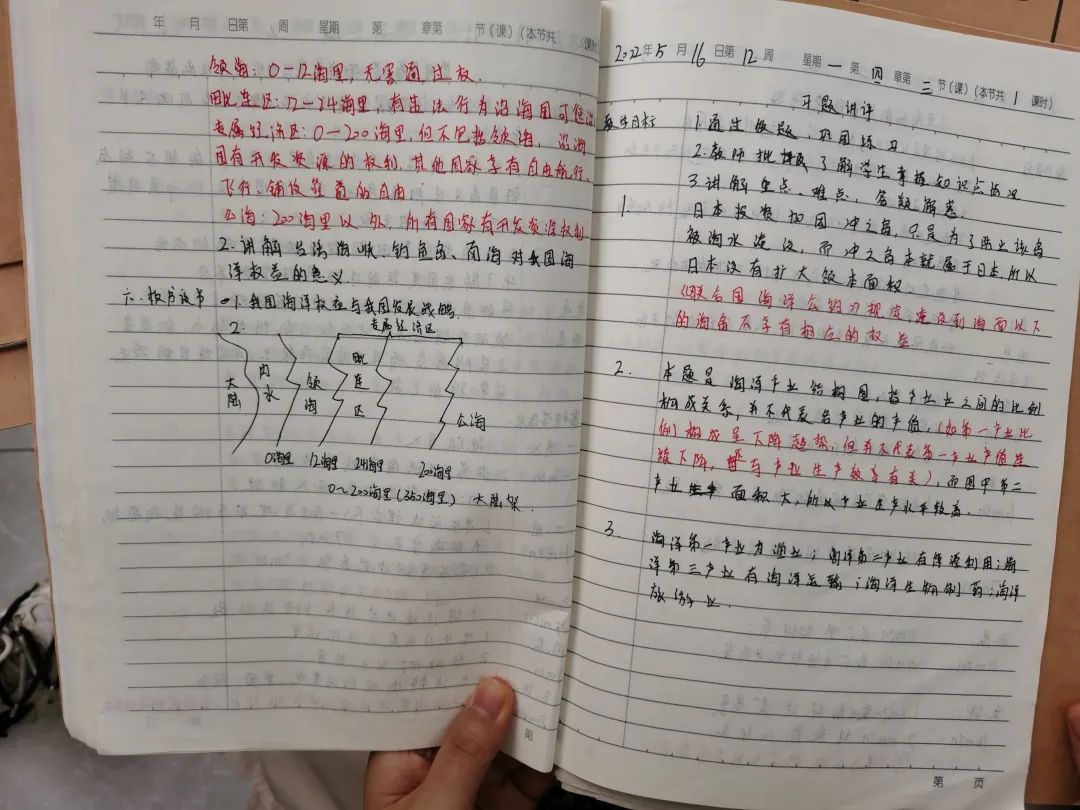 年 月 日第 周 星期 第 章第 节（课）（本节共 课时）
领海：0-12海里，无害通过权．
毗连区：12-24海里，有违法行为沿海国可
专属经济区：0-200海里，但不包括领海， 沿海
国有开发资源的权利，其他国家享有自由航行、
飞行铺设管道的自由
公海：200海里以外，所有国家有开发资源权利
2．讲解台湾海峡、钓鱼岛、南海对我国海
洋权益的意义
六．板书设计 一1．我国海洋权益与我国发展战略
2：
专属经济区
大陆 内水 领海 毗连区 公海
0海里 12海里 24海里 200海里
0～200海里（350海里） 大陆架．
第
2022年5月16日第12周 星期一第四章第三节（课）（本节共1课时）
习题讲评
教学目标 1．通过做题，巩固练习
2．教师批 了解学生掌握知识点情况
3．讲解重点、难点，答疑解惑．
1． 日本投资加固冲之鸟，只是为了防止该岛
被海水淹没，而冲之鸟本就属于日本所以
日本没有扩大领土面积
《联合国海洋公约》规定淹没到海面以下
的海岛不享有相应的权益
2． 本题是海洋产业结构图，指产业之间的比例
构成关系，并不代表各产业的产值，（如第一产业比
例）构成呈下降趋势，但并不代表第一产业产值连
续下降，与产业生产效率有关），而图中第二
产业 面积大，所以产业生产水平较高．
3． 海洋第一产业为渔业；海洋第二产业有 能源利用；海
洋第三产业有海洋运输；海洋生物制药；海洋
旅游业．
第 页